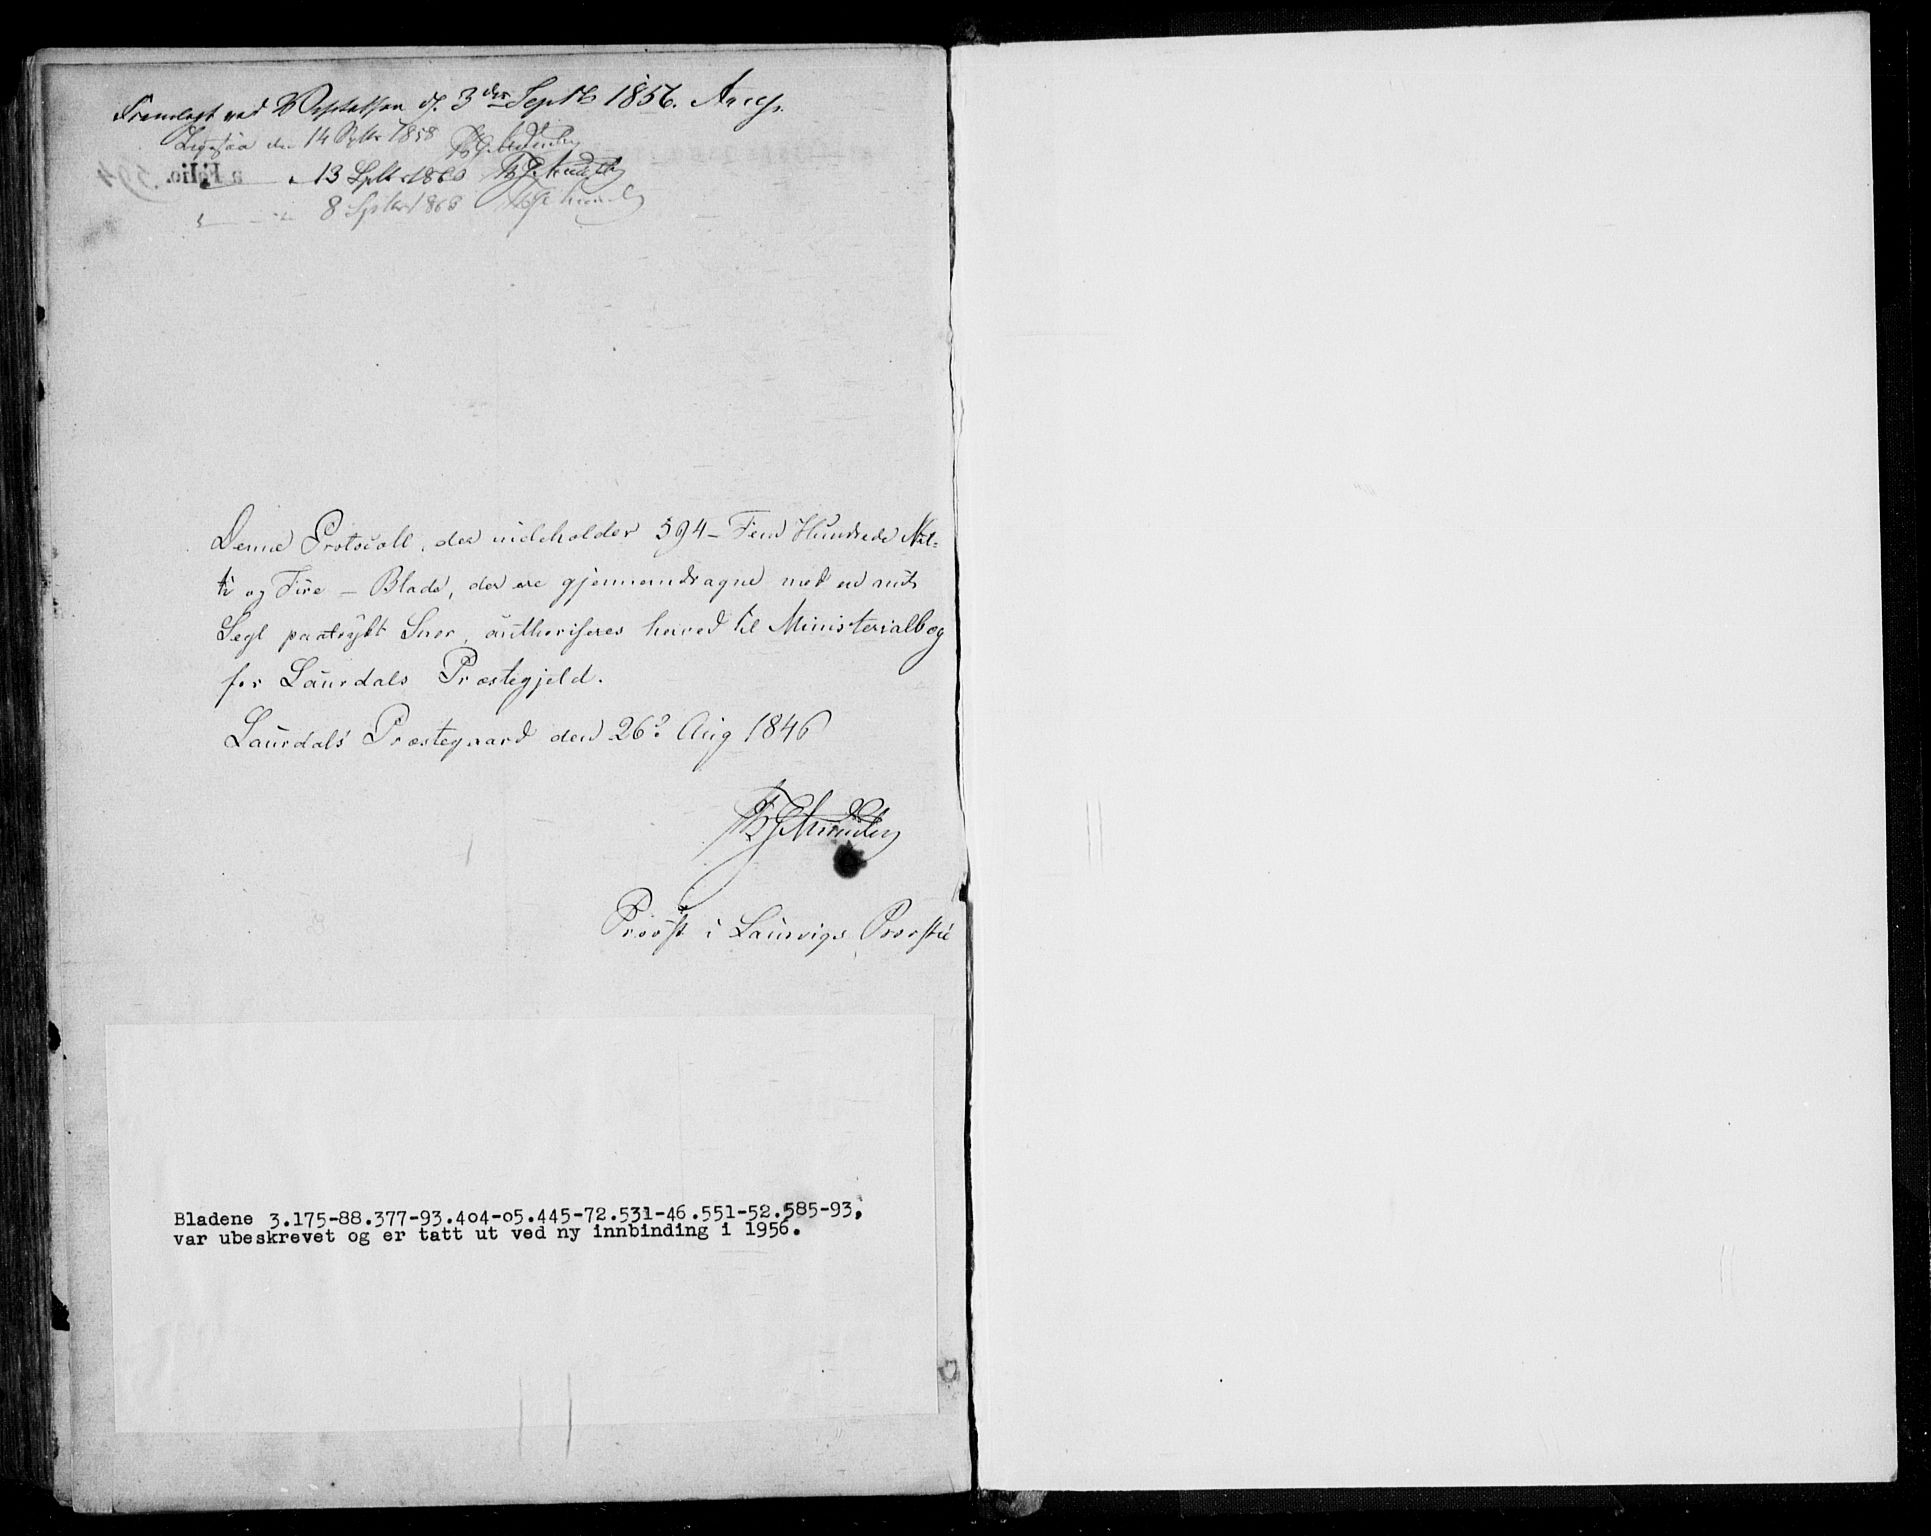 Fremlagt ved Visitatsen d. 3die Septb 1856. Arup.
Ligesaa den 14 Septbr 1858
13 Septbr 1860
8 Septbr 186
a Folio. 594
Denne Protocoll, der indeholder 594 – Fem Hundrede Nit-
ti og Fire – Blade, der ere gjennemdragne med en mit
Segl paatrykt Snor, authoriseres herved til Ministerialbog
for Laurdals Præstegjeld.
Laurdals Præstegaard den 26de Aug 1846
Provst i Laurvigs Provstie
Bladene 3.175-88.377-93.404-05.445-72.531-46.551-52.585-93,
var ubeskrevet og er tatt ut ved ny innbinding i 1956.